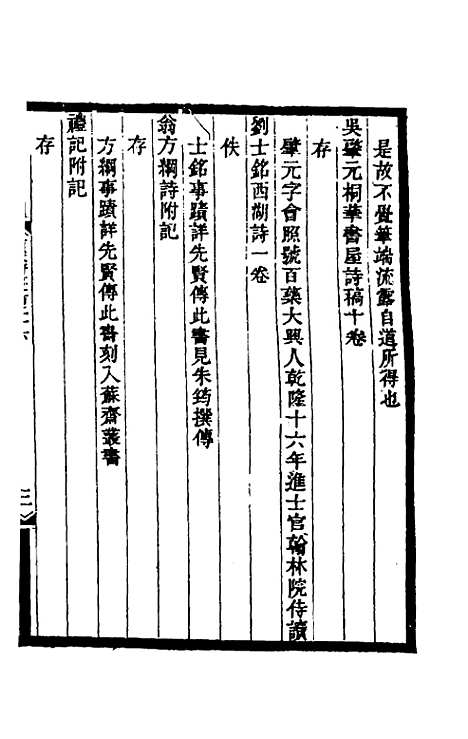 是故不覺筆端流露自道所得也
吳肇元桐華書屋詩稿十卷
存
肇元字會照號百藥大興人乾隆十六年進士官翰林院侍讀
劉士銘西湖詩一卷
佚
士銘事蹟詳先賢傳此書見朱筠撰傳
翁方綱詩附記
存
方綱事蹟詳先賢傳此書刻入蘇齋叢書
禮記附記
存
三